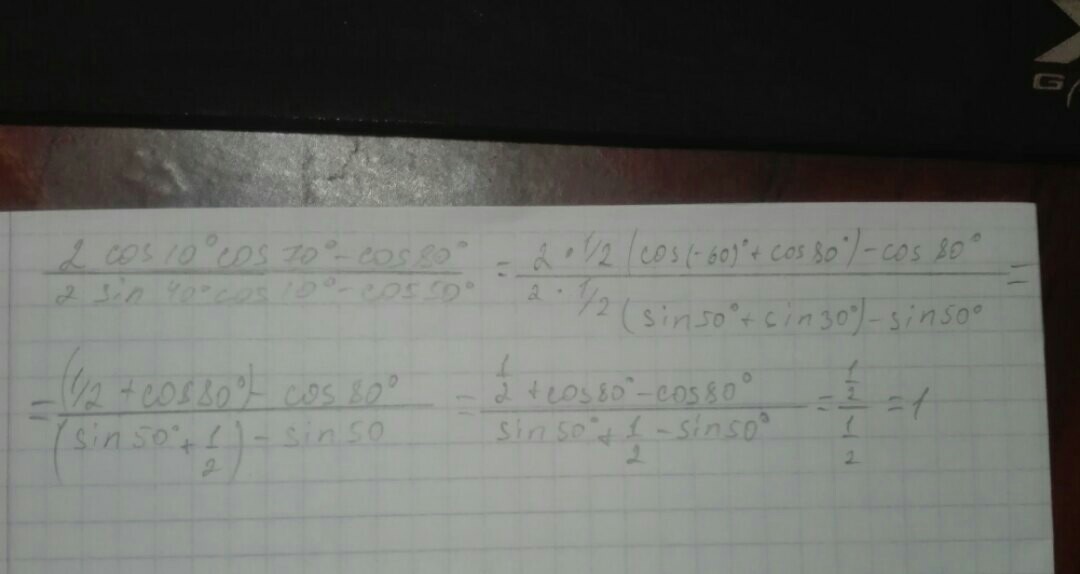 G
2 cos 10° cos 70° - cos 80° / 2 sin 40° cos 10° - cos 50° = 2 · 1/2 (cos(-60)° + cos 80°) - cos 80° / 2 · 1/2 (sin 50° + sin 30°) - sin 50° =
= (1/2 + cos 80°) - cos 80° / (sin 50° + 1/2) - sin 50 = 1/2 + cos 80° - cos 80° / sin 50° + 1/2 - sin 50° = 1/2 / 1/2 = 1